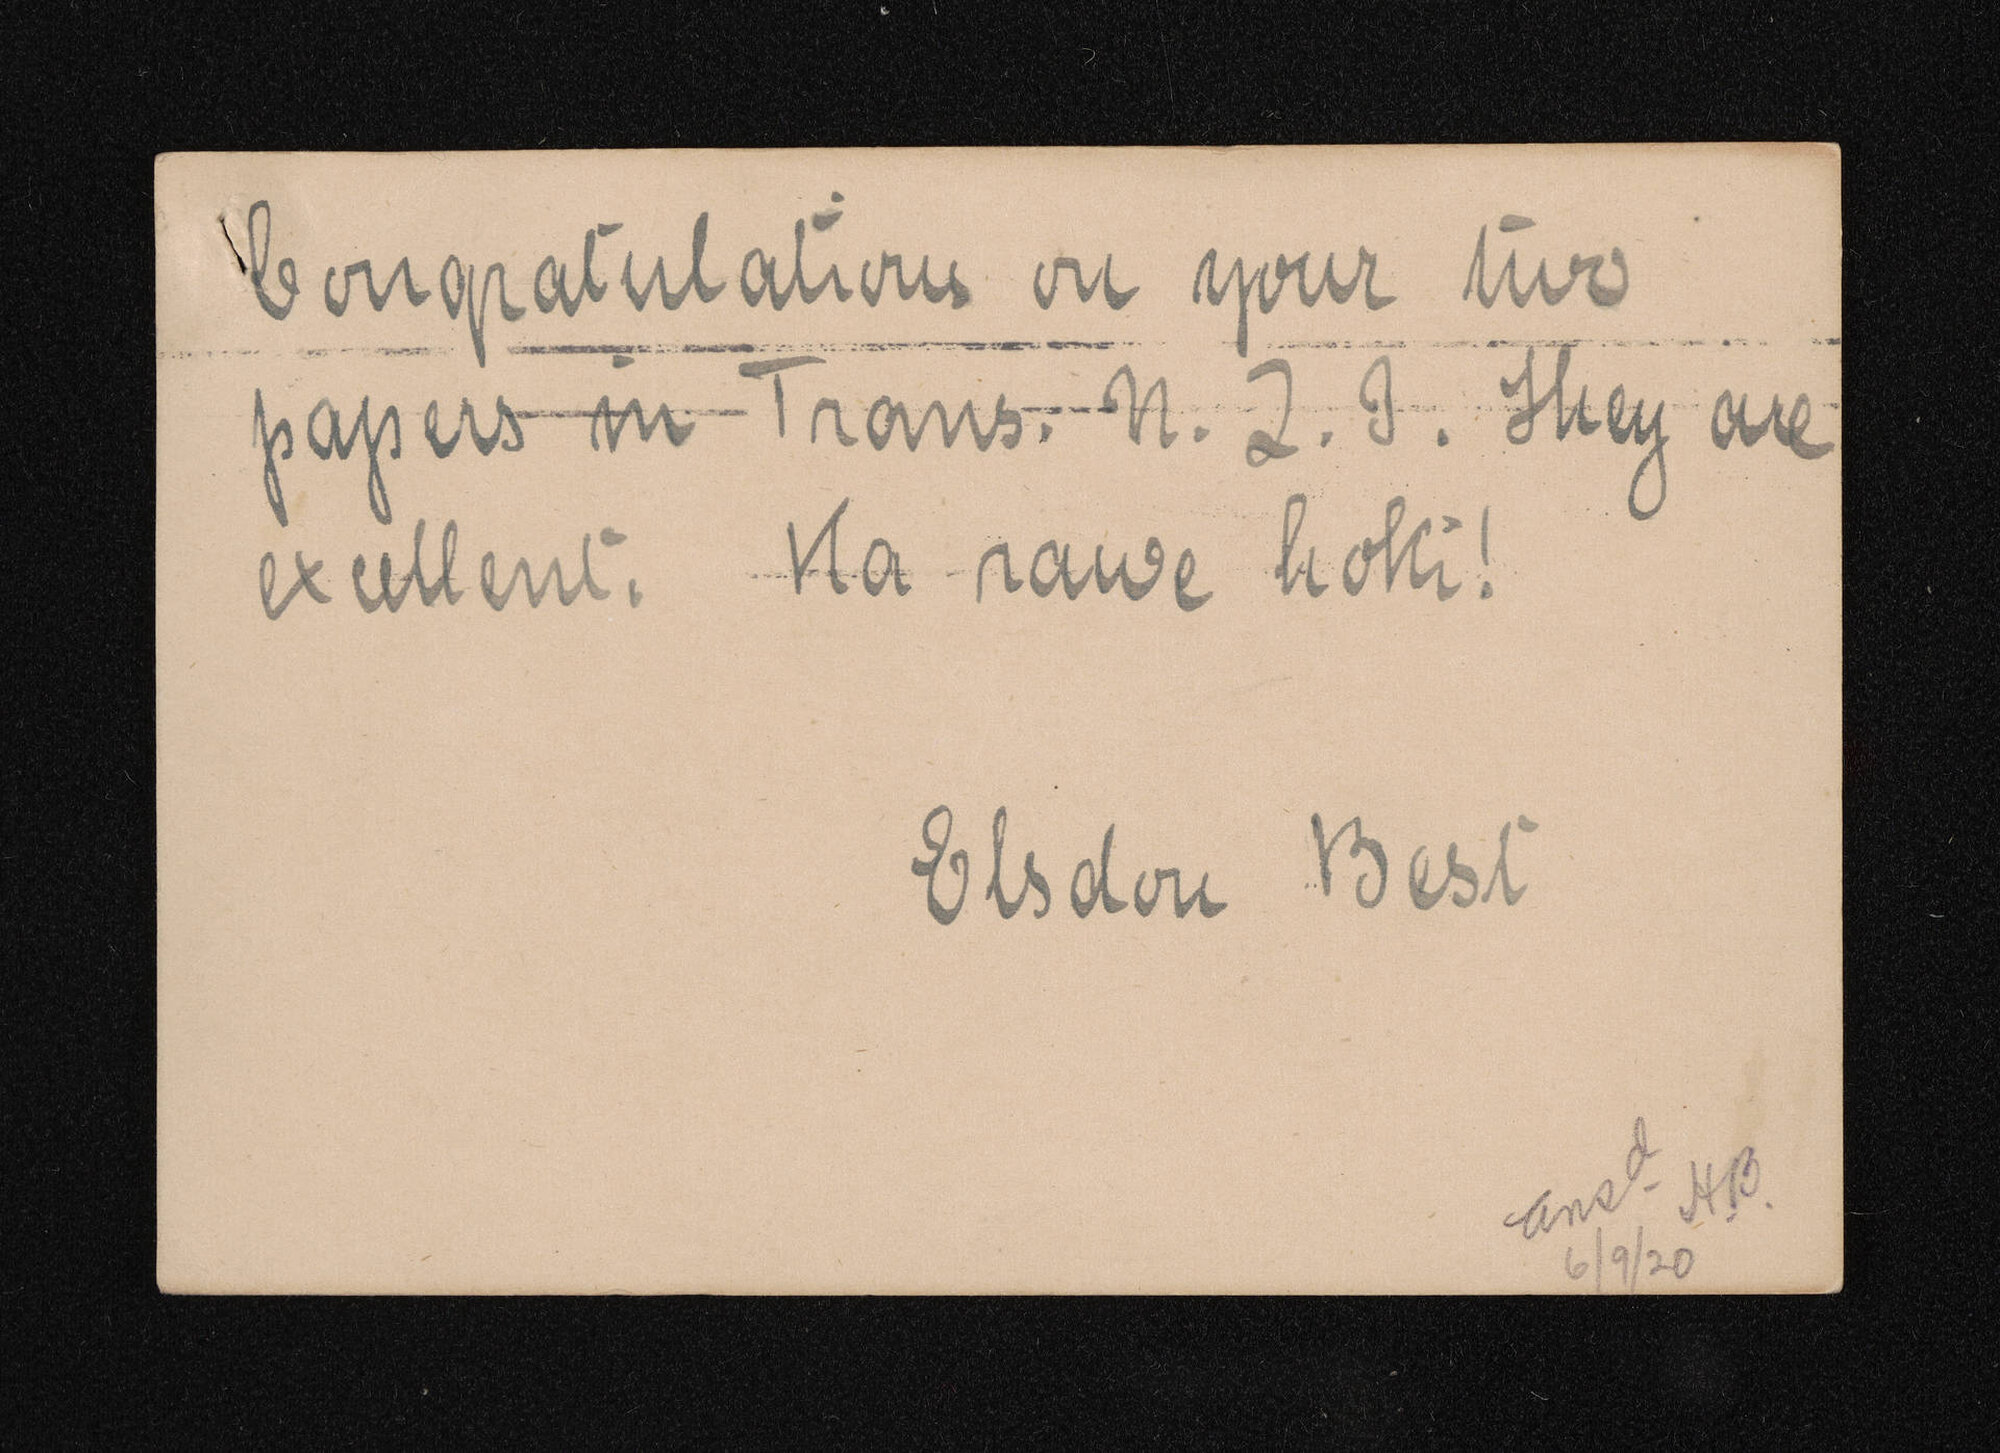 Congratulations on your two
papers in Trans. N. Z. I. They are
excellent. Ka rawe hoki!
Elsdon Best
Ansd H.B.
6/9/20